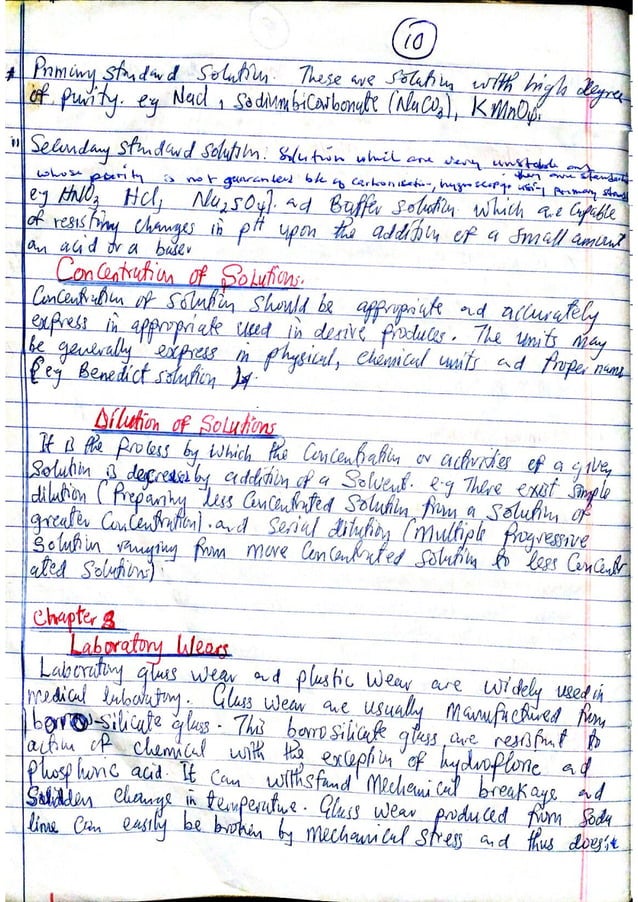 10
* Primary standard solution. These are solution with high degree
of purity. eg Nacl, Sodiumbicarbonate (NaCO3), KMnO4.
ii Secondary standard solution: Solution which are very unstable and
whose purity is not guaranteed b/c of carbonication, hygroscopic
they are standardize using primary stand
eg HNO3 HCl, Na2SO4]. ad Buffer solution which are capable
of resisting changes in pH upon the addition of a small amount
an acid or a base.
Concentration of Solutions.
Concentration of solution should be appropriate ad accurately
express in appropriate used in desire produces. The units may
be generally express in physical, chemical units ad Proper name
[eg Benedict solution].
Dilution of Solutions
It is the process by which the concentration or activities of a given
Solution is decreased by addition of a Solvent. e.g There exist simple
dilution (Preparing less Concentrated Solution from a solution of
greater Concentration). and Serial dilution (Multiple Progressive
Solution ranging from more Concentrated solution to less Concentr
ated Solution)
Chapter 3
Laboratory Wears
Laboratory glass wear and plastic wear are widely used in
medical laboratory. Glass wear are usually manufactured from
borro-silicate glass. This borrosilicate glass are resistant to
action of chemical with the exception of hydroflorie ad
phosphoric acid. It can withstand Mechanical breakage ad
Sudden change in temperature. Glass wear produced from Soda
lime can easily be broken by mechanical stress and thus does't